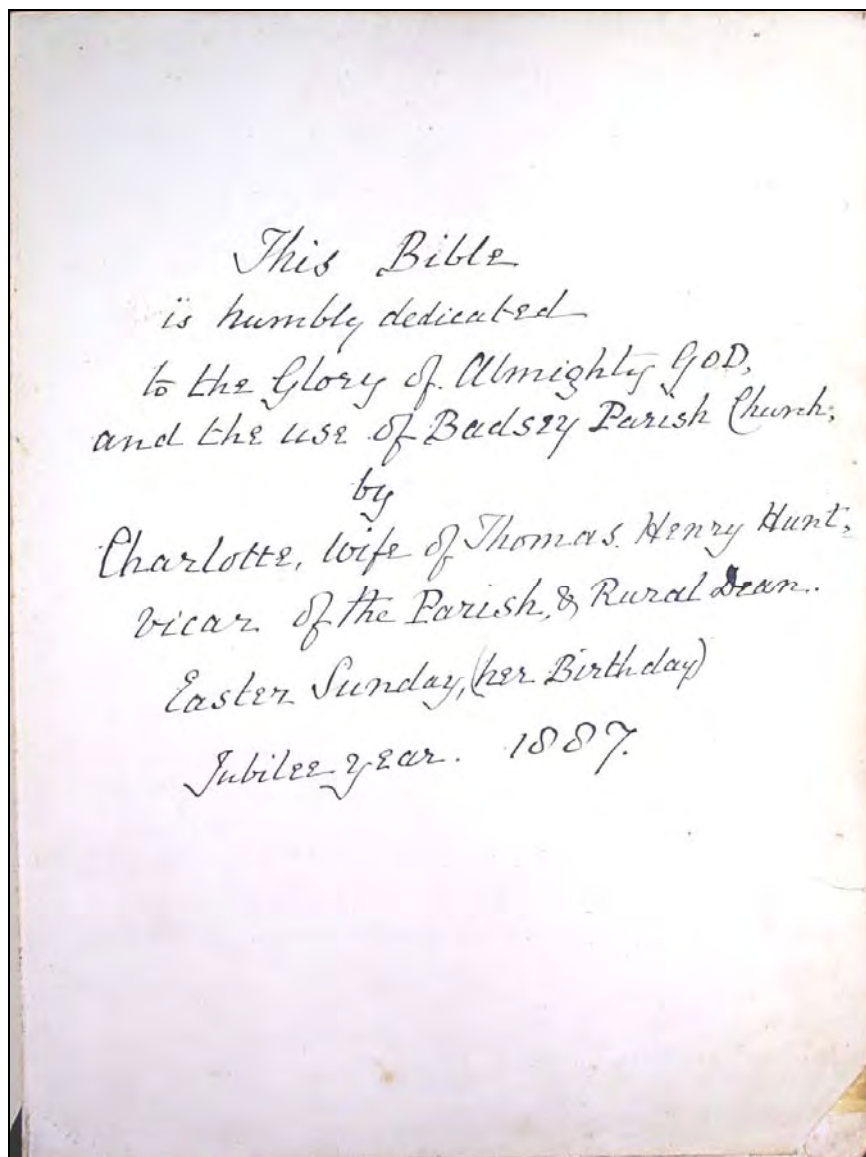 This Bible
is humbly dedicated
to the Glory of Almighty GOD,
and the use of Badsey Parish Church;
by
Charlotte, wife of Thomas Henry Hunt,
vicar of the Parish, & Rural Dean.
Easter Sunday, (her Birthday)
Jubilee year. 1887.